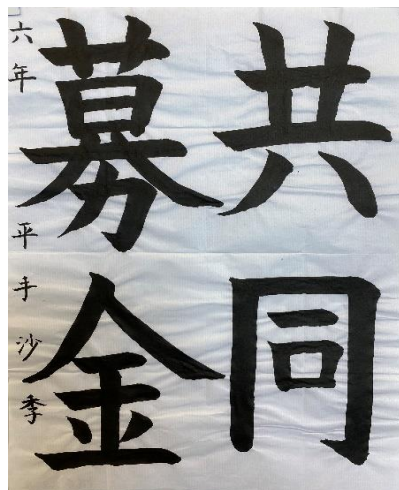 共同
募金
六年 平手沙季